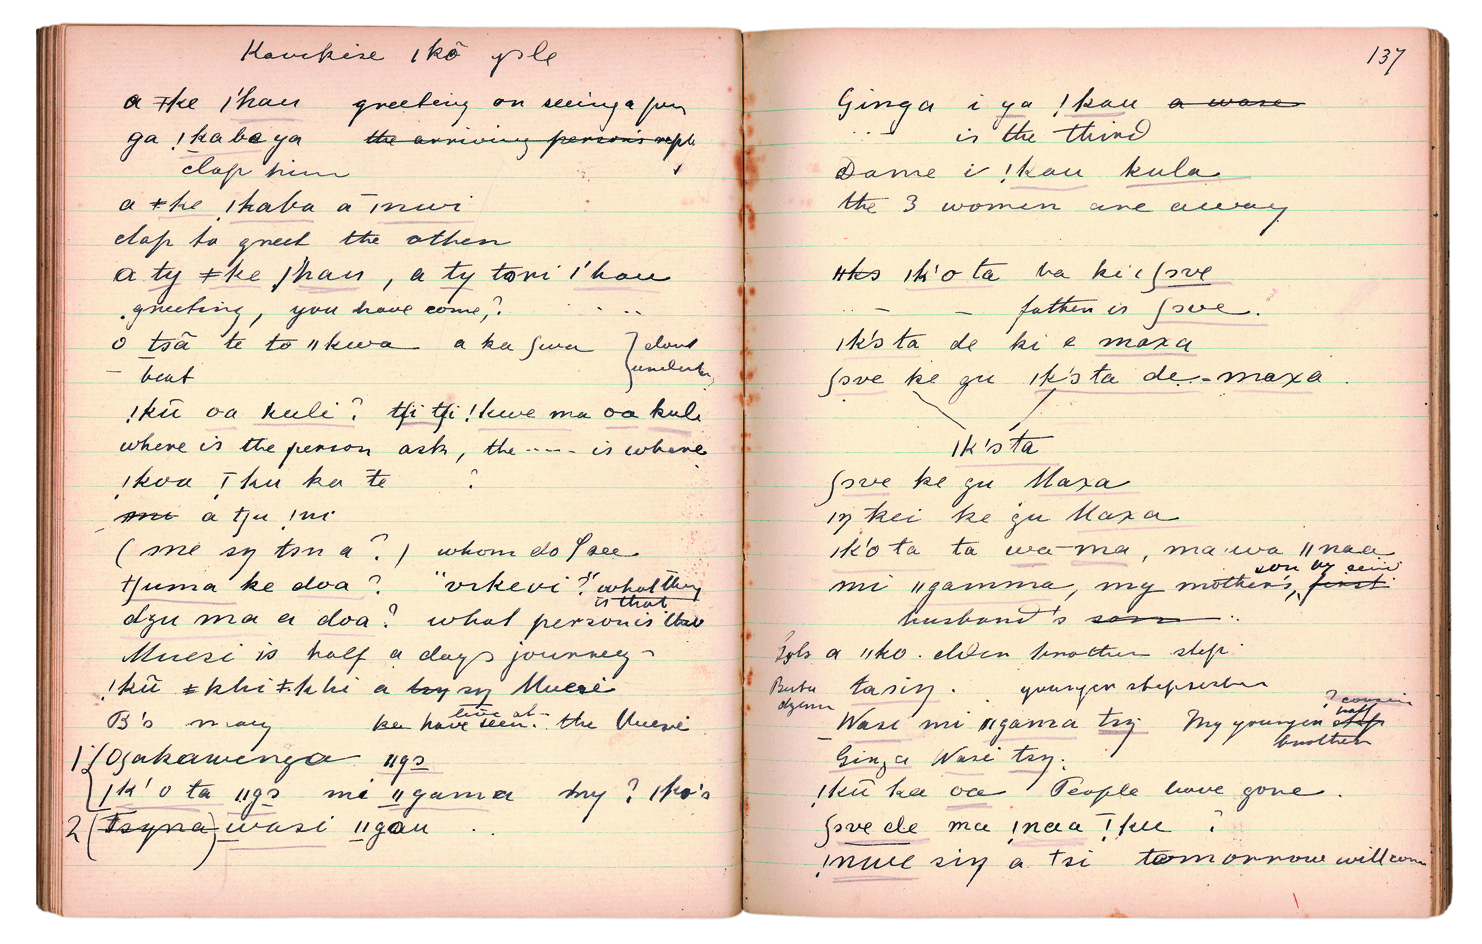 Kavikise ǀkõ yole
a ǂke ǀ'hau greeting on seeing a
ga ǃkabe ya the arriving person's reply
clap him
a ǂke ǃkaba ā īnwi
clap to greet the others
a ty ǂke ǀ'hau, a ty tori ǀ'hau
greeting, you have come?
o tsã te to ǁkwa a ka ʃwa } don't
beat
ǃkū oa kuli? tʃi tʃi ǃkwe ma oa kuli
where is the person ask, the ---- is where
ǃkoa ǃku ka te ?
mi a tʃu ǃni
(me sy tsn a?) whom do I see
tʃuma ke doa? "vrkevi?" what thing
is that
dzu ma a doa? what person is that
Muesi is half a days journey
ǃkū ǂkhi ǂkhi a try sy Muesi
live at
B's many ka have seen. the Muesi
1 (Ogakawinga ǁgɔ
ǀk'o ta ǁgɔ mi ǁgama my? ǀko's
2 (Tsyna) wasi ǁgau
137
Ginga i ya ǃkau a wase
is the third
Dame i ǃkau kula
the 3 women are away
ǁkɔ ǀk'o ta ba ki i ʃɔve
father is ʃɔve.
ǀk'ɔ ta de ki e maxa
ʃɔve ke gu ǀk'ɔ ta de - maxa.
ǀk'ɔ ta
ʃɔve ke gu Maxa
ŋ kei ke gu Maxa
ǀk'o ta ta wa-ma, ma wa ǁnaa
son by
mi ǁgamma, my mother's, first
husband's son
a ǁko. elder brother step.
tasiŋ. younger stepsister
? cousin
half
Wasi mi ǁgama tsy My younger step
brother
Ginga Wasi tsy.
ǃkū ka oa People have gone.
ʃɔve de ma ǃnaa ǃku ?
ǃnwe siŋ a tsi tomorrow will come